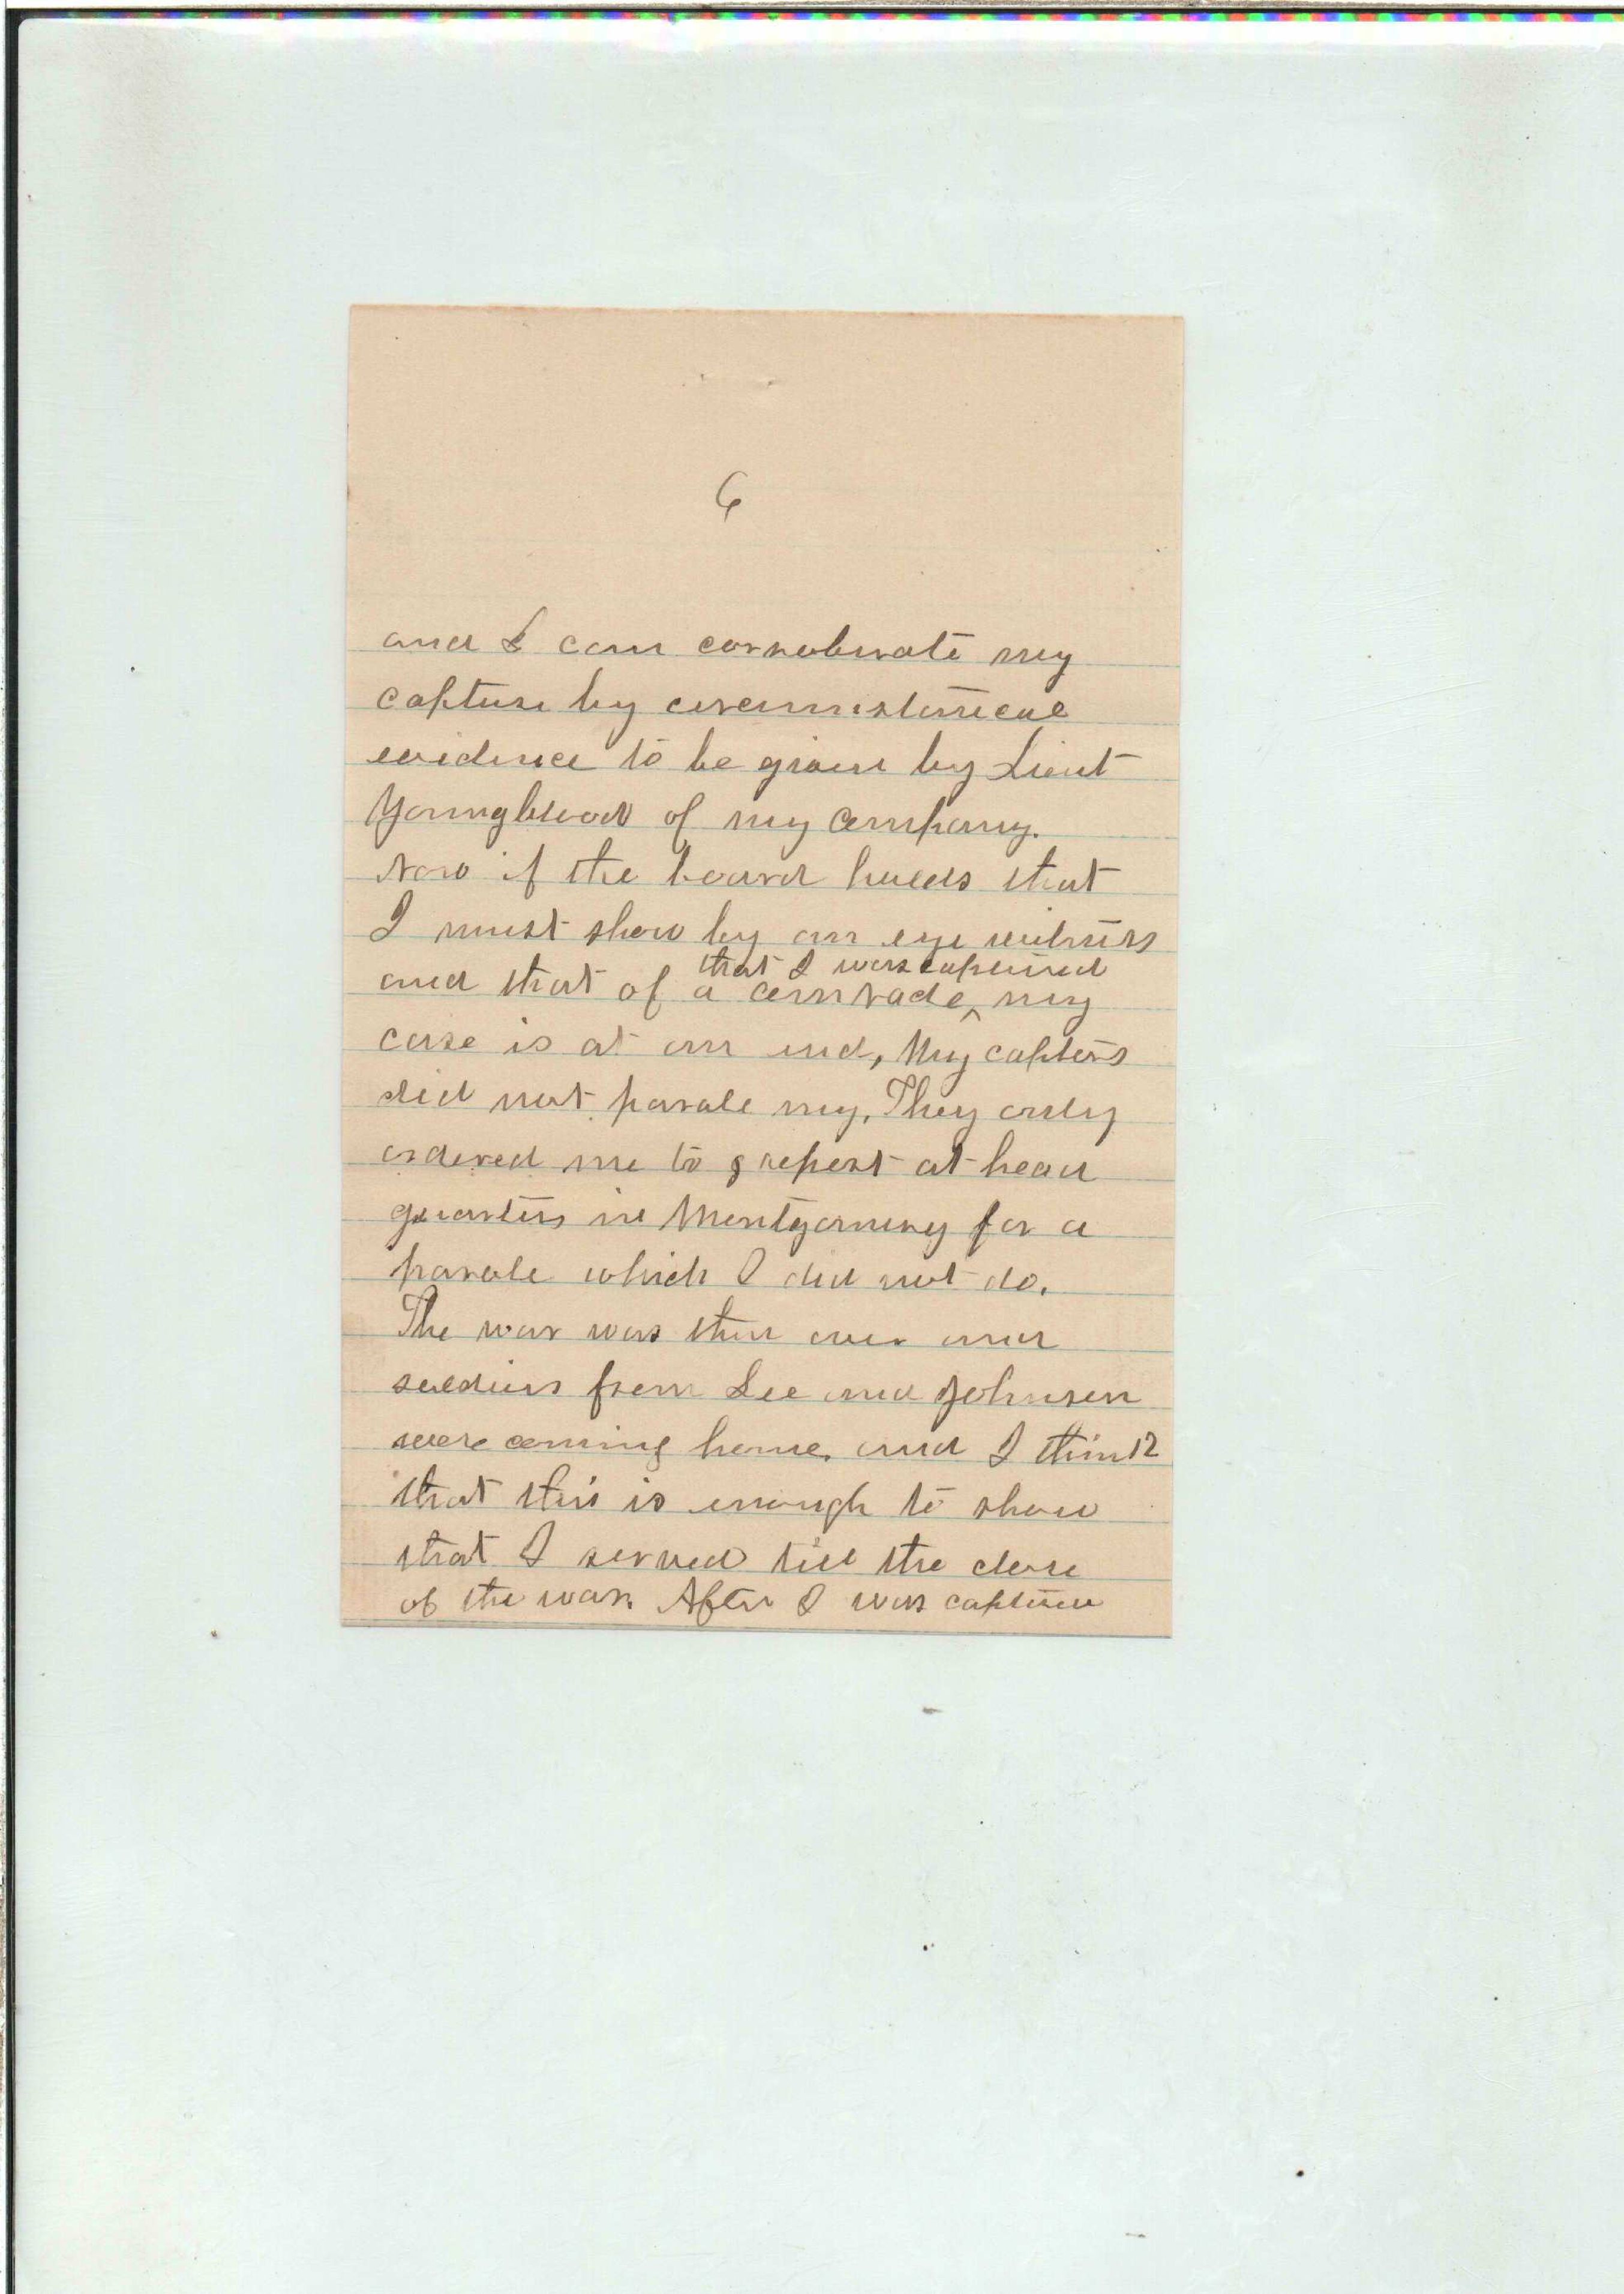 6
and I can corroborate my
capture by circumstancial
evidence to be given by Lieut
Youngblood of my company.
Now if the board holds that
I must show by an eye witness
that I was captured
and that of a comrade ^ my
case is at an end, My captors
did not parole my, They only
ordered me to report at head
quarters in Montgomery for a
parole which I did not do.
The war was then over and
soldiers from Lee and Johnson
were coming home. and I think
that this is enough to show
that I served till the close
of the war. After I was capture